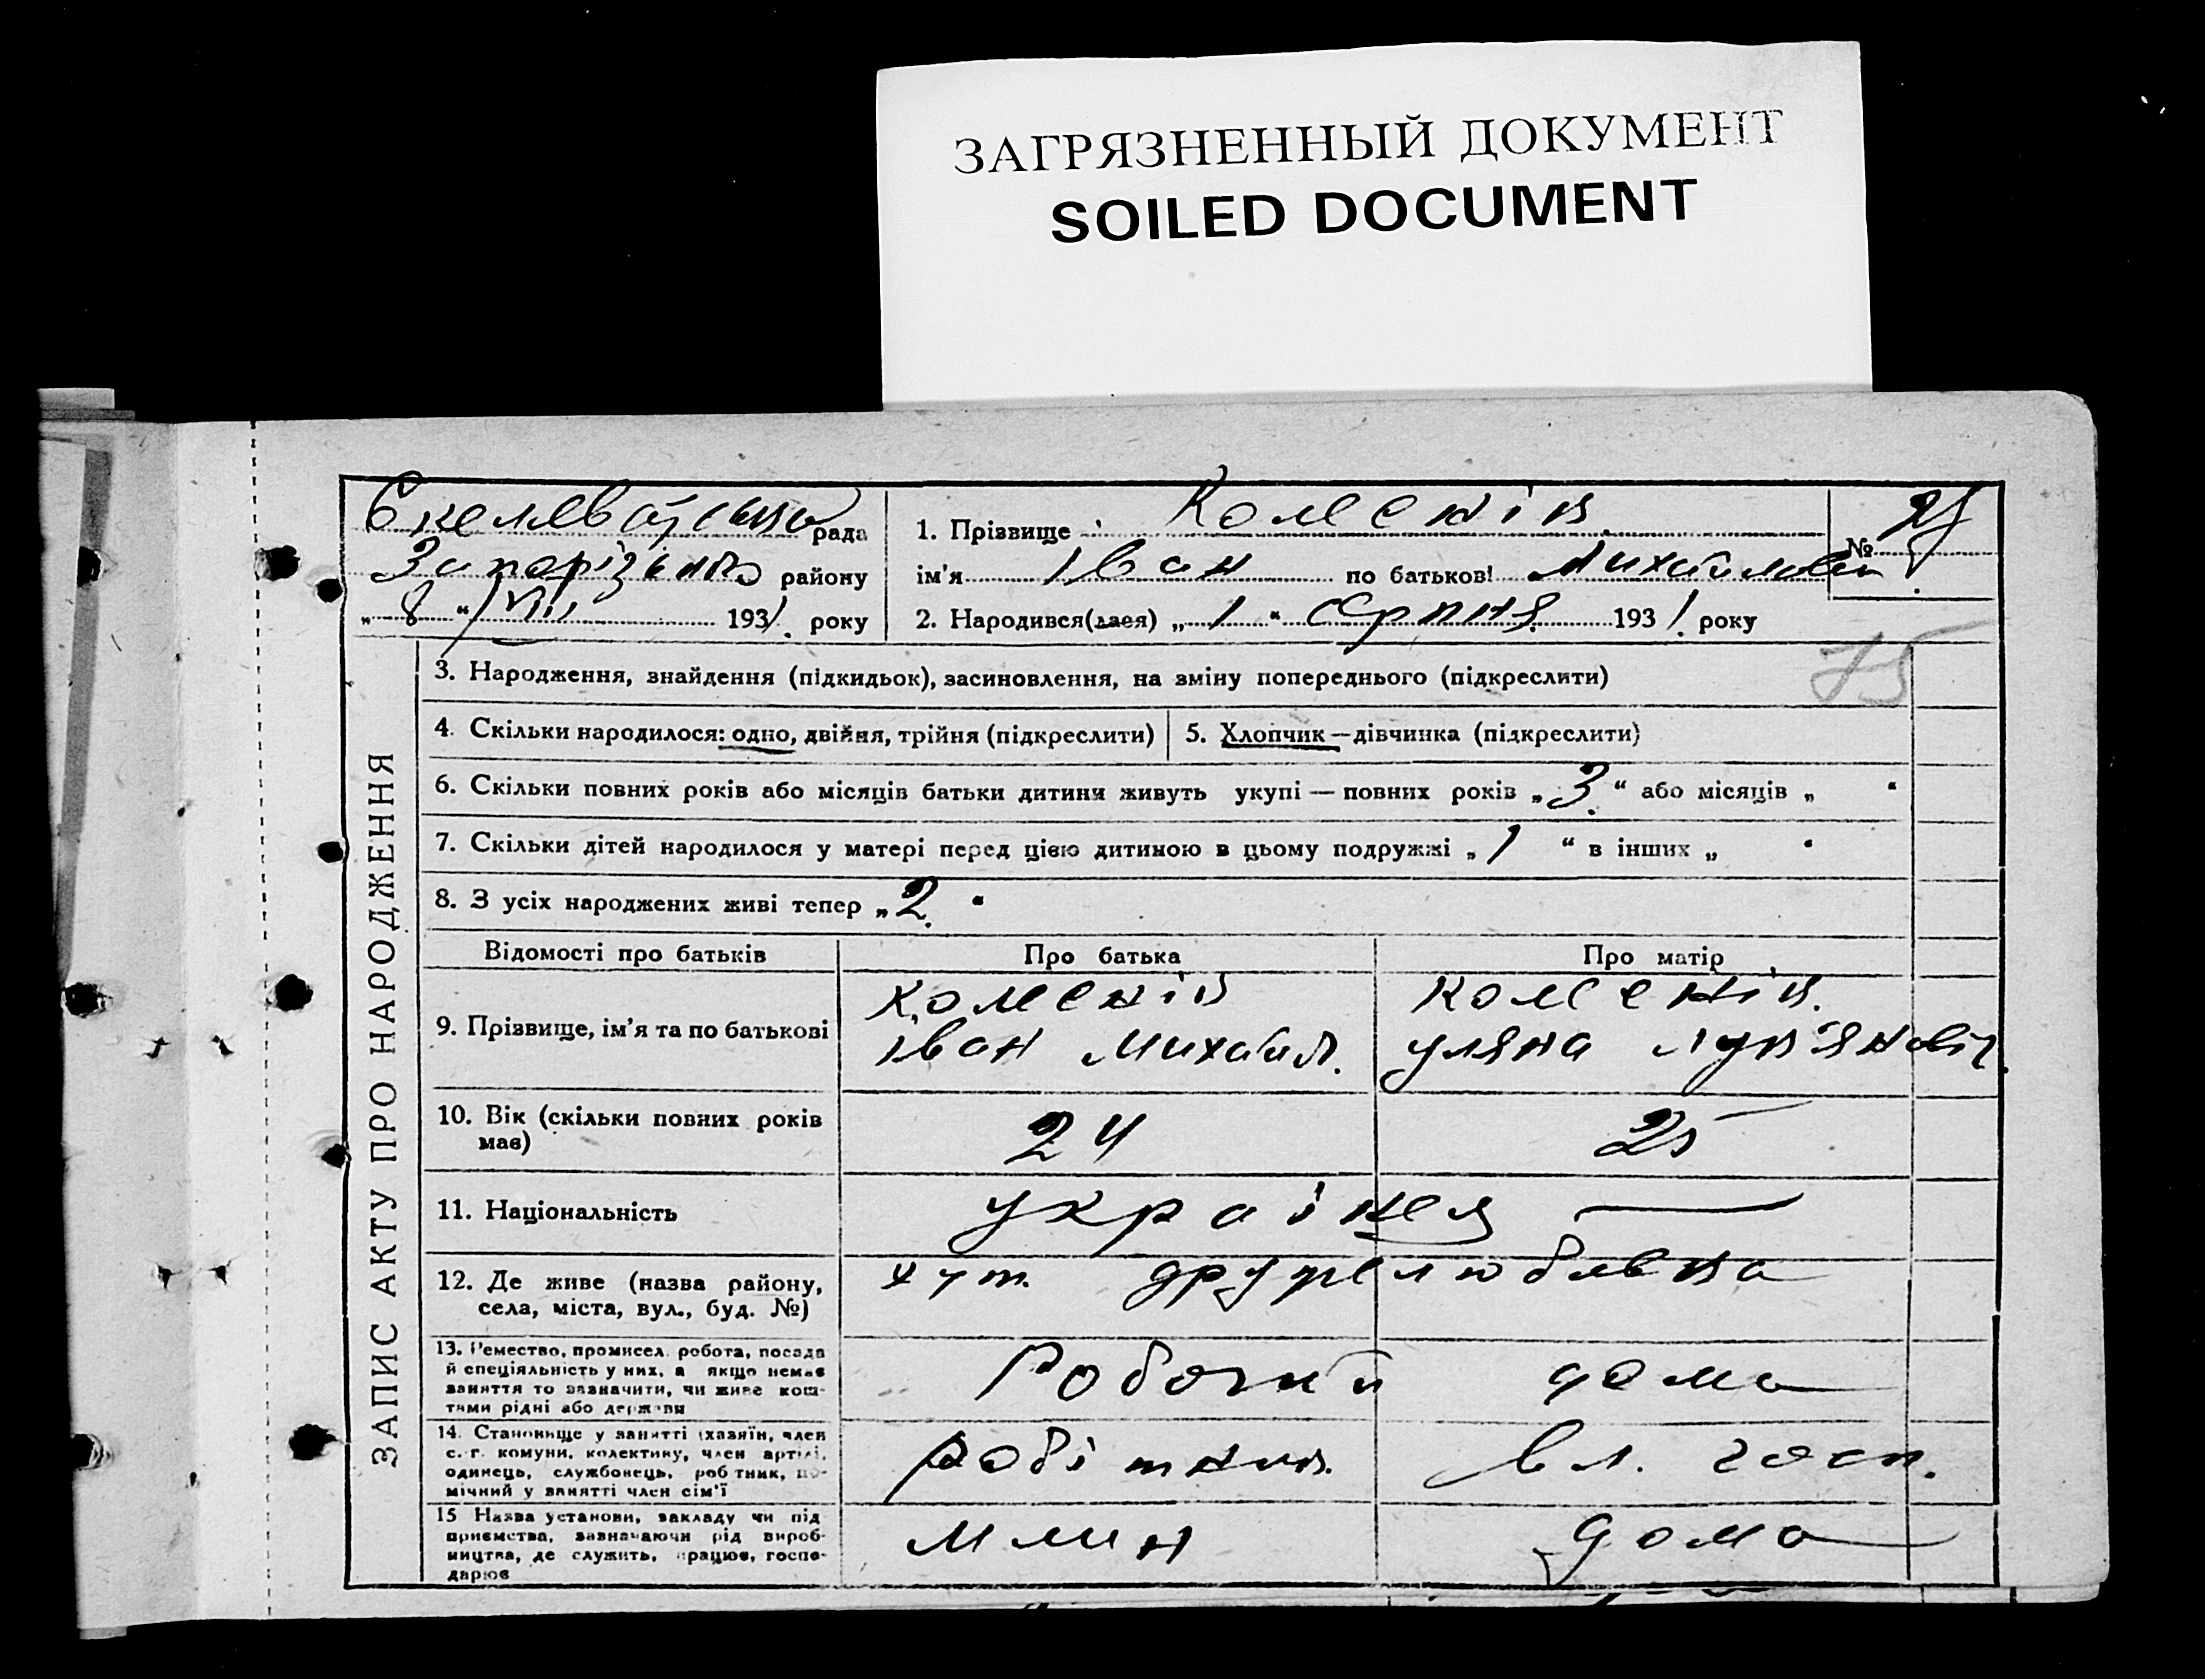 ЗАГРЯЗНЕННЫЙ ДОКУМЕНТ
SOILED DOCUMENT
рада
Запорізько району
„8“ VIII 1931. року
1. Прізвище
ім'я Іван по батькові Михайлович
2. Народився(лася) „1“ Серпня 1931. року
№
75
ЗАПИС АКТУ ПРО НАРОДЖЕННЯ
3. Народження, знайдення (підкидьок), засиновлення, на зміну попереднього (підкреслити)
4. Скільки народилося: одно, двійня, трійня (підкреслити)
5. Хлопчик — дівчинка (підкреслити)
6. Скільки повних років або місяців батьки дитини живуть укупі — повних років „3.“ або місяців „ “
7. Скільки дітей народилося у матері перед цією дитиною в цьому подружжі „1 “ в інших „ “
8. З усіх народжених живі тепер „2.“
Відомості про батьків
Про батька
Про матір
9. Прізвище, ім'я та по батькові
іван Михайл.
уляна лук'янович.
10. Вік (скільки повних років має)
24
25
11. Національність
12. Де живе (назва району,
села, міста, вул., буд. №)
хут. дружелюбівка
13. Ремество, промисел, робота, посада
й спеціяльність у них, а якщо немає
заняття то зазначити, чи живе кош-
тами рідні або держави
Робочий
дома
14. Становище у занятті (хазяїн, член
с.-г. комуни, колективу, член артілі,
одинець, службовець, робітник, по-
мічний у занятті член сім'ї
робітник.
вл. госп.
15 Назва установи, закладу чи під
приємства, зазначаючи рід вироб-
ництва, де служить, працює, госпо-
дарює
млин
дома